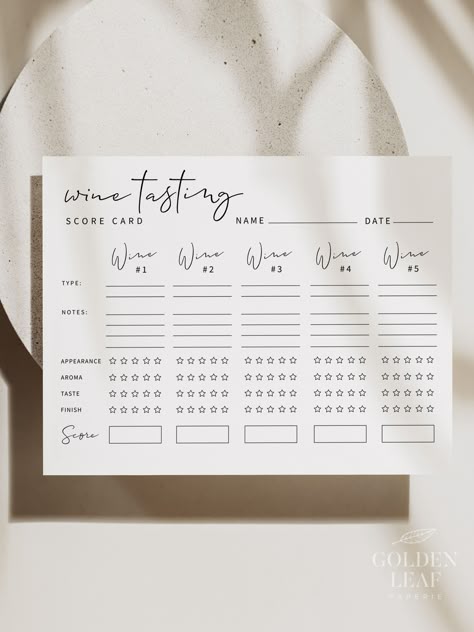 wine tasting
SCORE CARD NAME DATE
Wine Wine Wine Wine Wine
#1 #2 #3 #4 #5
TYPE:
NOTES:
APPEARANCE
AROMA
TASTE
FINISH
Score
GOLDEN
LEAF
PAPERIE